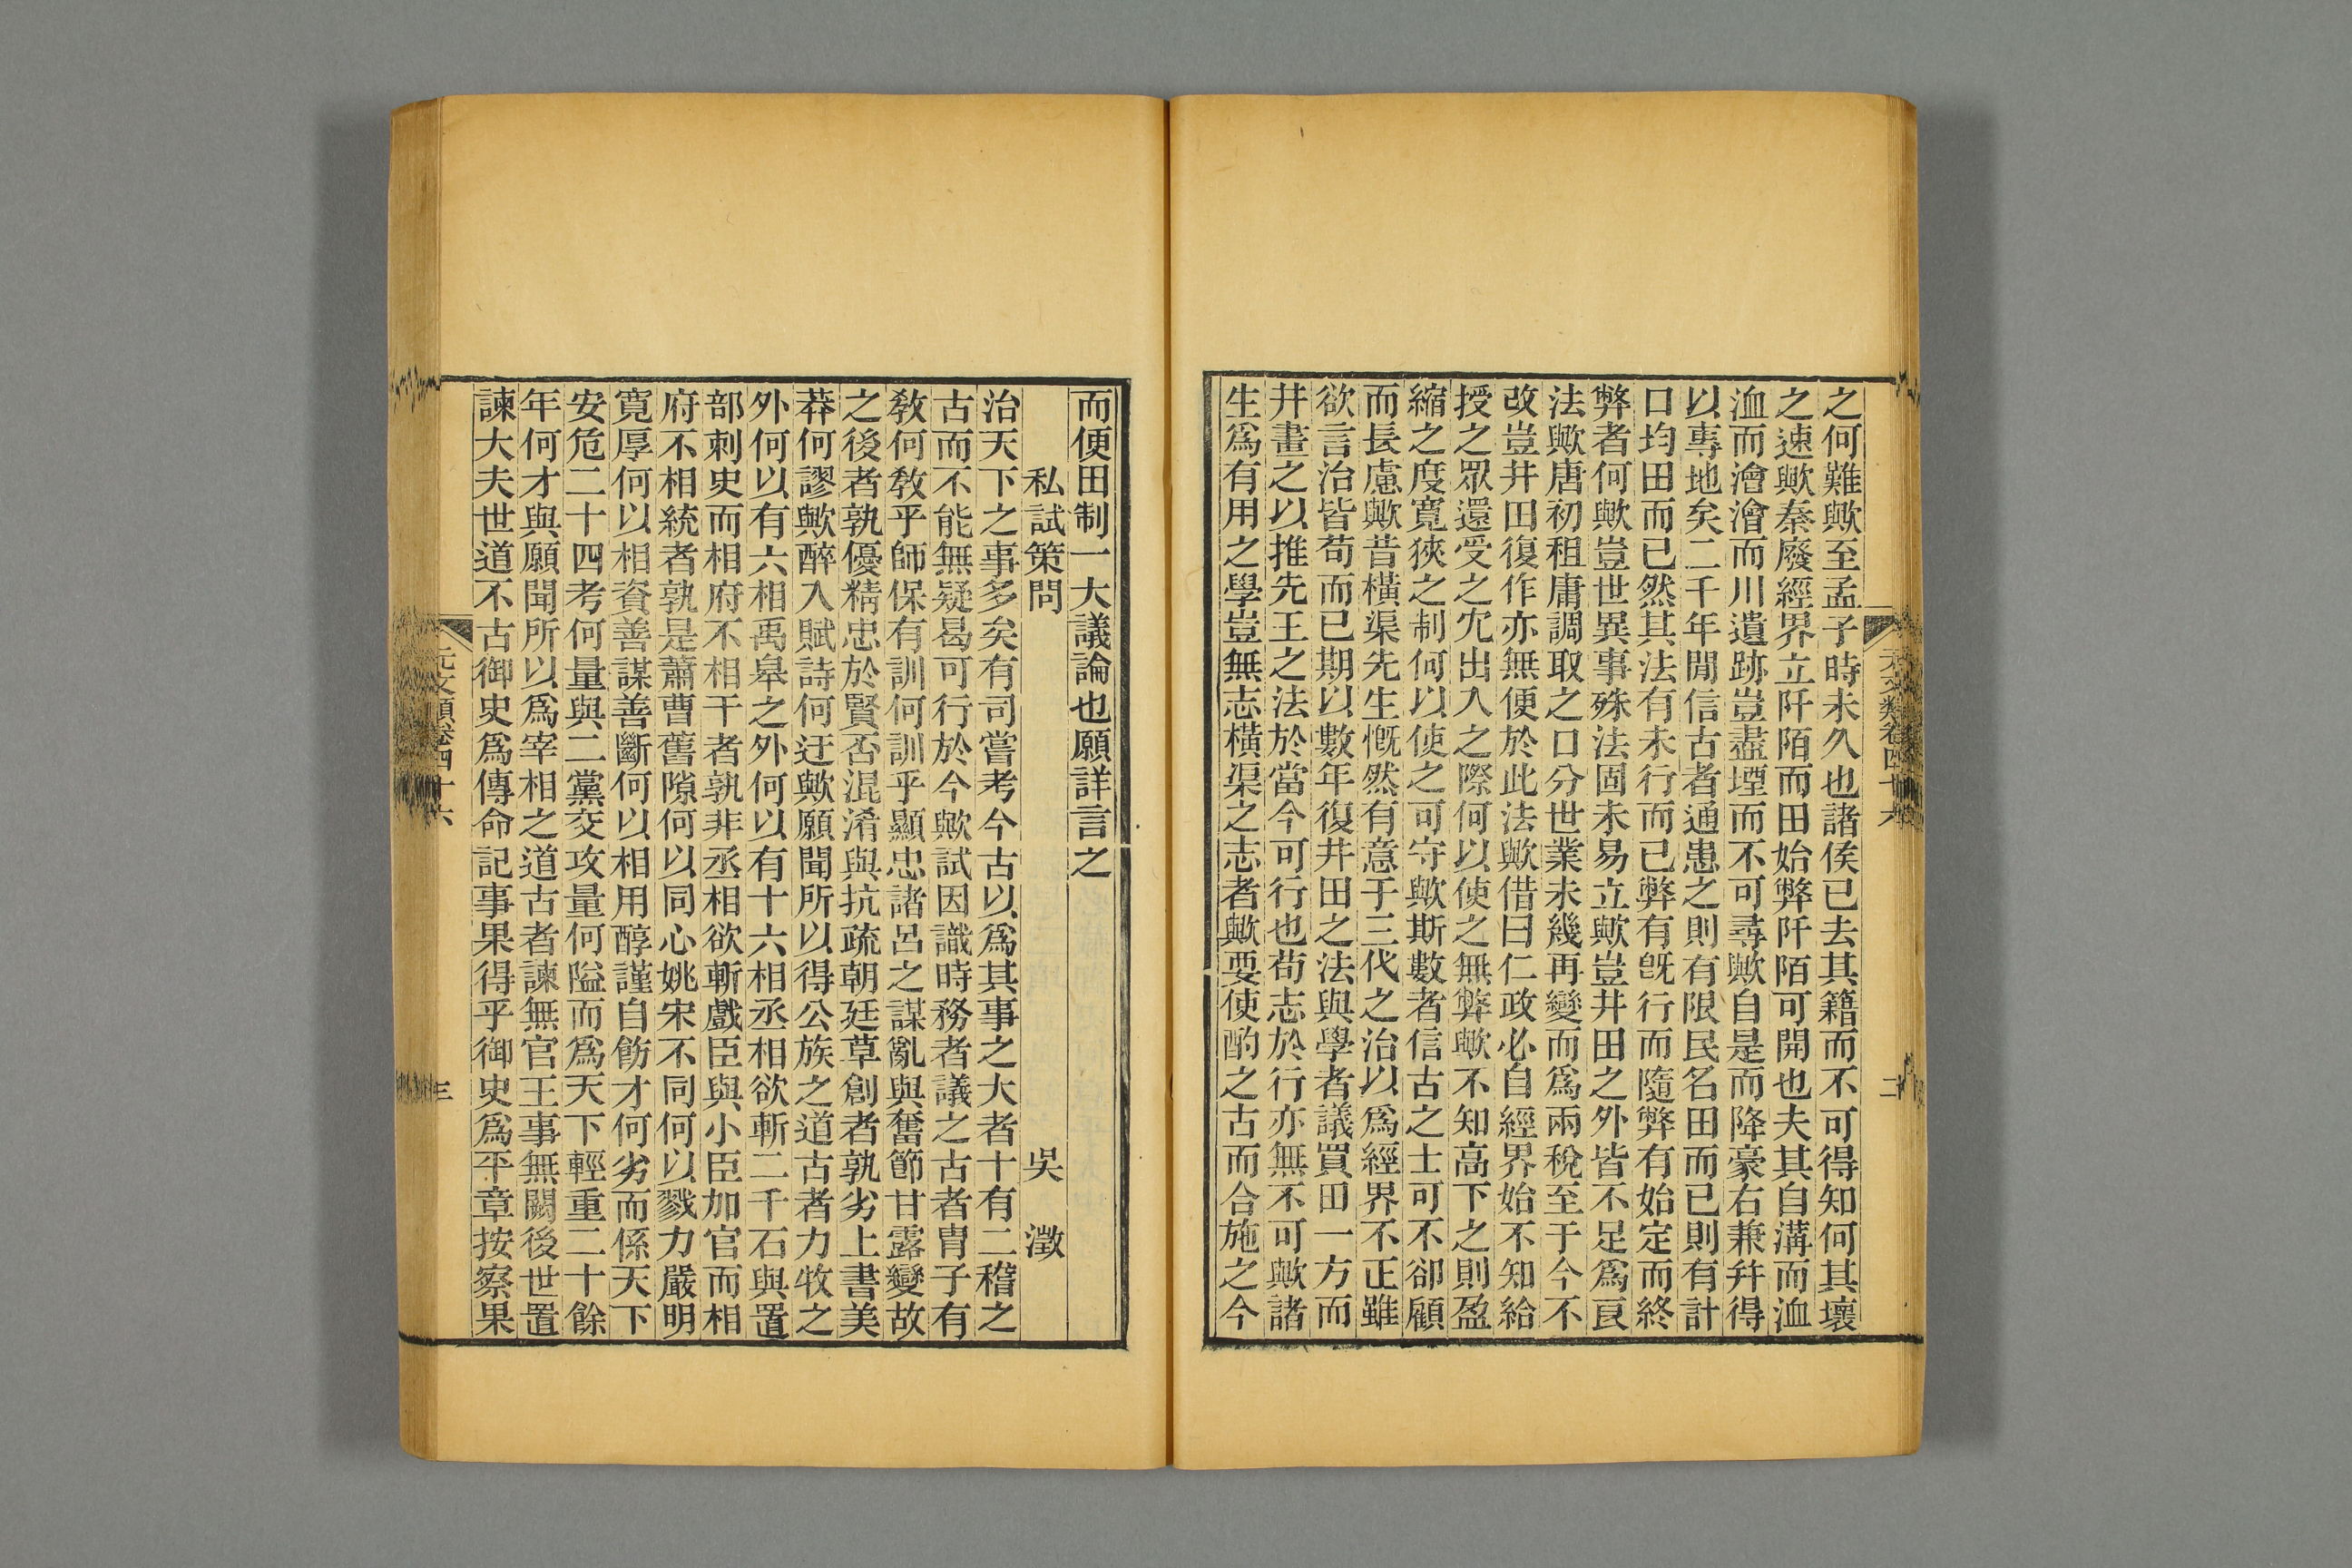 元文類卷四十六
二
之何難歟至孟子時未久也諸侯已去其籍而不可得知何其壞
之速歟秦廢經界立阡陌而田始弊阡陌可開也夫其自溝而洫
洫而澮澮而川遺跡豈盡堙而不可尋歟自是而降豪右兼并得
以專地矣二千年閒信古者通患之則有限民名田而已則有計
口均田而已然其法有未行而已弊有旣行而隨弊有始定而終
弊者何歟豈世異事殊法固未易立歟豈井田之外皆不足爲良
法歟唐初租庸調取之口分世業未幾再變而爲兩稅至于今不
改豈井田復作亦無便於此法歟借曰仁政必自經界始不知給
授之眾還受之冗出入之際何以使之無弊歟不知高下之則盈
縮之度寬狹之制何以使之可守歟斯數者信古之士可不卻顧
而長慮歟昔橫渠先生慨然有意于三代之治以爲經界不正雖
欲言治皆苟而已期以數年復井田之法與學者議買田一方而
井畫之以推先王之法於當今可行也苟志於行亦無不可歟諸
生爲有用之學豈無志橫渠之志者歟要使酌之古而合施之今
而便田制一大議論也願詳言之
私試策問 吳 澂
治天下之事多矣有司嘗考今古以爲其事之大者十有二稽之
古而不能無疑曷可行於今歟試因識時務者議之古者胄子有
敎何敎乎師保有訓何訓乎顯忠諸呂之謀亂與奮節甘露變故
之後者孰優精忠於賢否混淆與抗疏朝廷草創者孰劣上書美
莽何謬歟醉入賦詩何迂歟願聞所以得公族之道古者力牧之
外何以有六相禹皋之外何以有十六相丞相欲斬二千石與置
部刺史而相府不相干者孰非丞相欲斬戲臣與小臣加官而相
府不相統者孰是蕭曹舊隙何以同心姚宋不同何以戮力嚴明
寬厚何以相資善謀善斷何以相用醇謹自飭才何劣而係天下
安危二十四考何量與二黨交攻量何隘而爲天下輕重二十餘
年何才與願聞所以爲宰相之道古者諫無官王事無闕後世置
諫大夫世道不古御史爲傳命記事果得乎御史爲平章按察果
元文類卷四十六
三